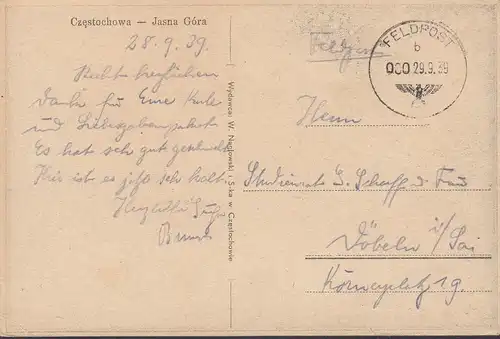 Częstochowa — Jasna Góra
28.9.39.
Recht herzlichen
Dank für Eure Karte
und Liebesgabenpaket
Es hat sehr gut geschmeckt
Hier ist es jetzt sehr kalt.
Herzliche Grüße
Wydawca: W. Nagłowski i S-ka w Częstochowie
Feldpost
FELDPOST
b
000 29.9.39
Herrn
Studienrat u. Frau
Döbeln i/Sa
Körnerplatz 19.